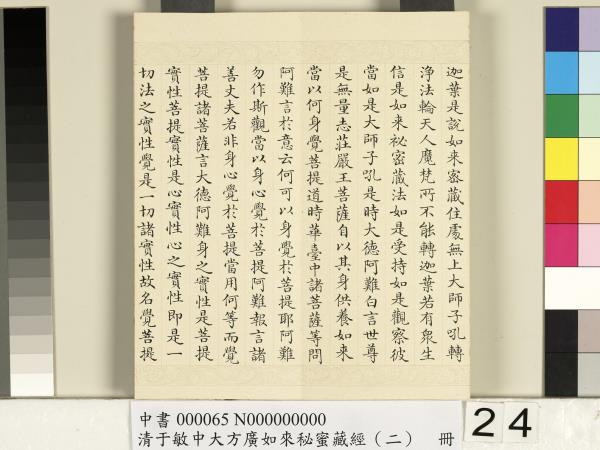 迦葉是說如來密藏住處無上大師子吼轉
淨法輪天人魔梵所不能轉迦葉若有眾生
信是如來祕密藏法如是受持如是觀察彼
當如是大師子吼是時大德阿難白言世尊
是無量志莊嚴王菩薩自以其身供養如來
當以何身覺菩提道時華臺中諸菩薩等問
阿難言於意云何可以身覺於菩提耶阿難
勿作斯觀當以身心覺於菩提阿難報言諸
善丈夫若非身心覺於菩提當用何等而覺
菩提諸菩薩言大德阿難身之實性是菩提
實性菩提實性是心實性心之實性即是一
切法之實性覺是一切諸實性故名覺菩提
中書 000065 N000000000
清于敏中大方廣如來秘蜜藏經（二） 冊
24